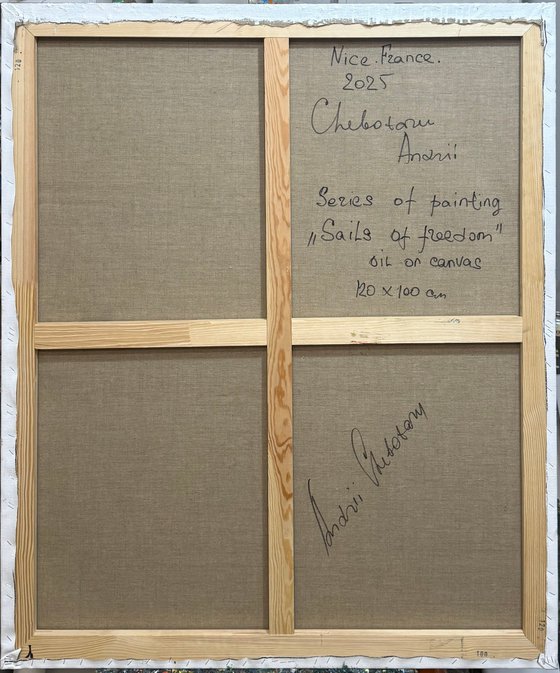 Nice. France.
2025
Chebotaru
Andrii
Series of painting
„Sails of freedom"
oil on canvas
120 x 100 cm
Andrii Chebotaru
120
120
100